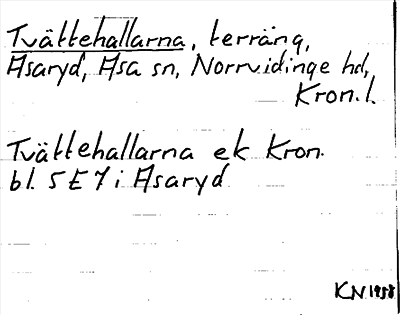 Tvättehallarna, terräng,
Asaryd, Asa sn, Norrvidinge hd,
Kron. l.
Tvättehallarna ek Kron.
bl. 5 E 7 i Asaryd
KN 1958